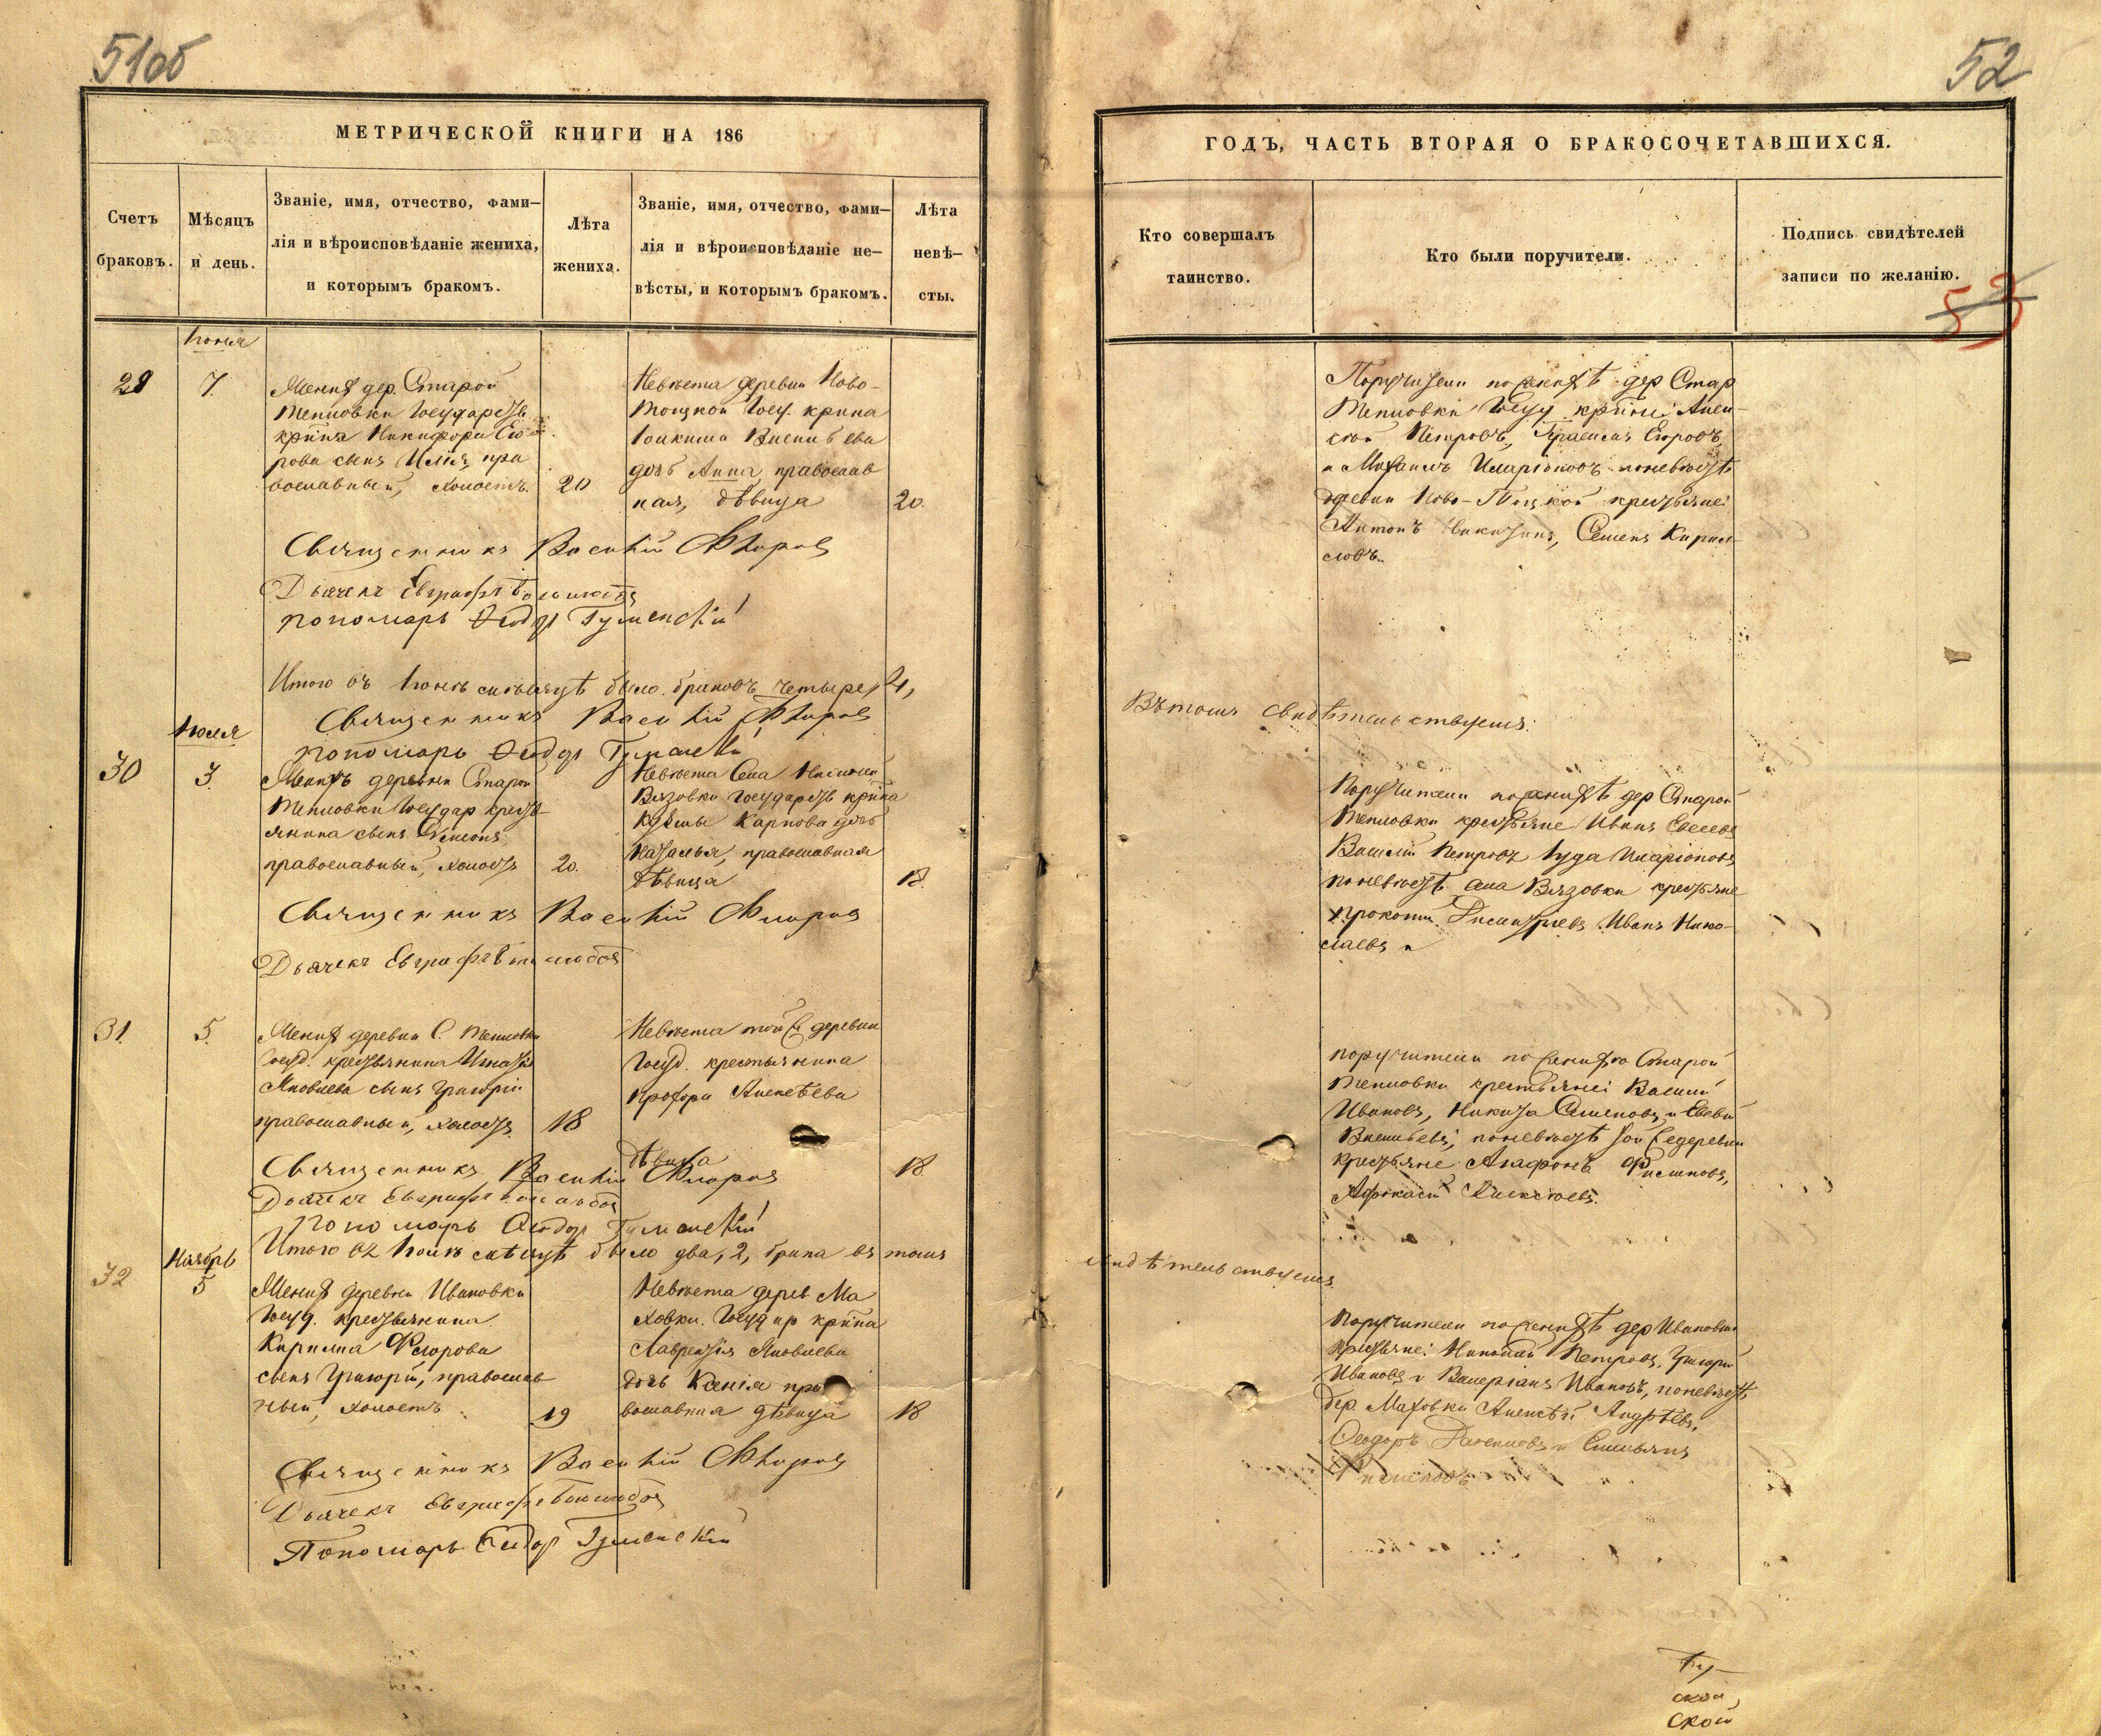 51об
МЕТРИЧЕСКОЙ КНИГИ НА 186
Счетъ браковъ.
Мѣсяцъ и день.
Званіе, имя, отчество, фами-
лія и вѣроисповѣданіе жениха,
и которымъ бракомъ.
Лѣта жениха.
Званіе, имя, отчество, фами-
лія и вѣроисповѣданіе не-
вѣсты, и которымъ бракомъ.
Лѣта невѣ-
сты.
Іюня
29
7.
Женихъ дер. Старой
Тепловки Государств.
крпна Никифора Его-
рова сынъ Илія, пра
вославный, холостъ.
20
Невѣста деревни Ново-
Троцкой Госу. крпна
Іоакима Василь ева
дочь Анна, православ
ная, дѣвица
20.
Священникъ Василій Флоровъ
Дьячекъ Евграфъ Боголюбовъ
пономарь Ѳеодоръ Гуменскій
Итого въ Іюнѣ мѣсяцѣ было браковъ четыре, 4,
Священникъ Василій Флоровъ
пономарь Ѳеодоръ Гуменскій
Іюля
30
3.
Женихъ деревни Старой
Тепловки Государ крест
янина сынъ
православный, холостъ
20.
Невѣста Села
Вязовки Государств крпна
Кузьмы Карпова дочь
Наталья, православная
дѣвица
18.
Священникъ Василій Флоровъ
Дьячекъ Евграфъ Боголюбовъ
31.
5.
Женихъ деревни С. Тепловки
Госуд. крестьянина Игнатія
Яковлева сынъ Григорій
православный, холостъ.
18
Невѣста той же деревни
Госуд. крестьянина
Прохора Алексѣева
дѣвица
18.
Священникъ Василій Флоровъ
Дьячекъ Евграфъ Боголюбовъ
Пономарь Ѳеодоръ Гуменскій
Итого въ Іюлѣ мѣсяцѣ было два, 2, брака въ томъ
Ноябрь
32
5
Женихъ деревни Ивановки
Госуд. крестьянина
Кирилла Флорова
сынъ Григорій, православ
ный, холостъ
19
Невѣста дерев Ма
ховки. Государ крпна
Лаврентія Яковлева
дочь Ксенія пра
вославная дѣвица
18
Священникъ Василій Флоровъ
Дьячекъ Евграфъ Боголюбовъ
Пономарь Ѳеодоръ Гуменскій
52
ГОДЪ, ЧАСТЬ ВТОРАЯ О БРАКОСОЧЕТАВШИХСЯ.
Кто совершалъ
таинство.
Кто были поручители.
Подпись свидѣтелей
записи по желанію.
53
Поручители по женихѣ дер Стар
Тепловки Госу крпне: Алек-
сѣй Петровъ, Герасимъ Егоровъ
и Михаилъ Иларіоновъ по невѣстѣ
деревни Ново-Троцкой крестьяне:
Антонъ Никитинъ, Семенъ Кирил-
ловъ.
Въ томъ свидѣтельствуемъ:
Поручители по женихѣ дер Старой
Тепловки крестьяне Иванъ
Василій Петровъ Іуда Иларіоновъ
по невѣстѣ села Вязовки крестьяне
Прокопій Димитріевъ Иванъ Нико-
лаевъ и
поручители по женихѣ Старой
Тепловки крестьяне: Василій
Ивановъ, Никита Семеновъ, и
Васильевъ; по невѣстѣ той же деревни
крестьяне Агафонъ Филиповъ,
Афонасій Алексѣевъ.
свидѣтельствуемъ.
Поручители по женихѣ дер Ивановки
крестьяне: Николай Петровъ, Григорій
Ивановъ и Валеріанъ Ивановъ, по невѣстѣ
дер. Маховки Алексѣй Андрѣевъ,
Ѳеодоръ и Емельянъ
Филиповъ
ской,
ской